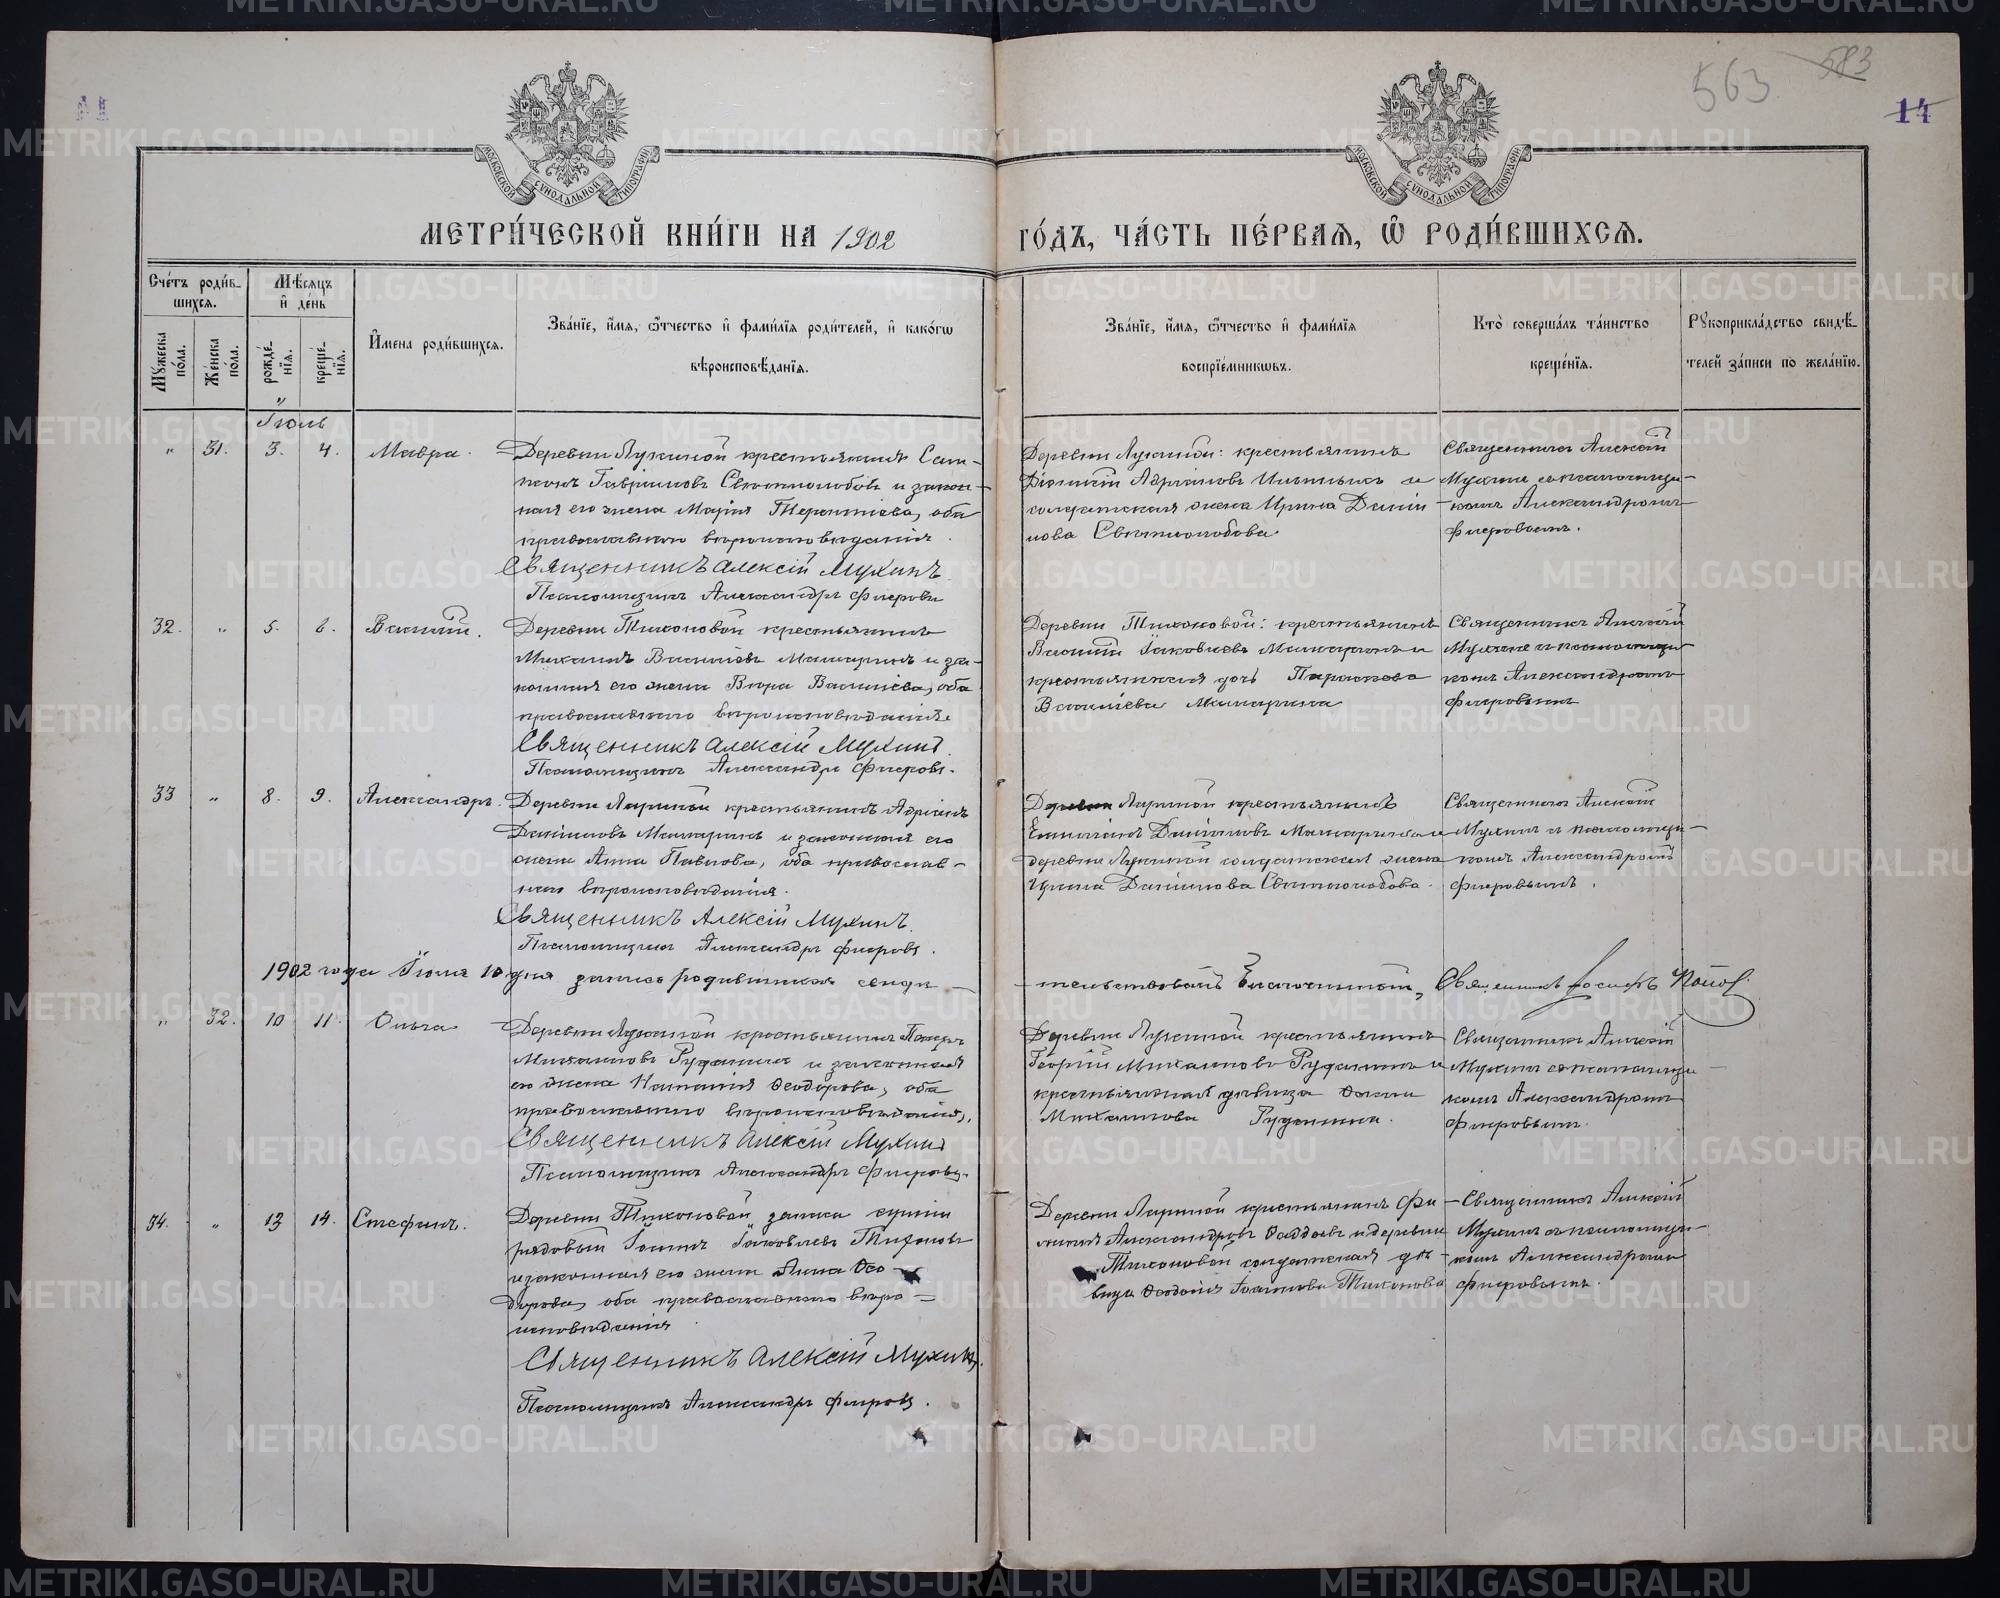 563
583
14
МОСКОВСКОЙ СѴНОДАЛЬНОЙ ТИПОГРАФІИ
МОСКОВСКОЙ СѴНОДАЛЬНОЙ ТИПОГРАФІИ
МЕТРИ́ЧЕСКОЙ КНИ́ГИ НА 1902
ГО́ДЪ, ЧА́СТЬ ПЕ́РВАѦ, Ѡ РОДИ́ВШИХСѦ.
Сче́тъ роди́вшихсѧ.
Мѣ́сѧцъ и҆ де́нь
Мꙋ́жеска по́ла.
Же́нска по́ла.
рожде́нїѧ.
креще́нїѧ.
И҆мена роди́вшихсѧ.
Зва́нїе, и҆́мѧ, ѻ҆́тчество и҆ фами́лїѧ роди́телей, и҆ како́гѡ
вѣроисповѣ́данїѧ.
Зва́нїе, и҆́мѧ, ѻ҆́тчество и҆ фами́лїѧ
воспрїе́мникѡвъ.
Кто̀ соверша́лъ та́инство
креще́нїѧ.
Рꙋкоприкла́дство свидѣ́-
телей за́писи по жела́нїю.
Іюль
„ 31. 3. 4. Мавра.
Деревни Лукиной крестьянинъ Сам-
псонъ Гавріиловъ Святполобовъ и закон-
ная его жена Марія Терентіева, оба
православнаго вѣроисповѣданія.
Священникъ Алексій Мухинъ.
Псаломщикъ Александръ Флеровъ
Деревни Лукиной: крестьянинъ
Діонисій Адріановъ Ильиныхъ и
солдатская жена Ирина Даніи-
лова Святполобова
Священникъ Алексій
Мухинъ съ псаломщи-
комъ Александромъ
Флеровымъ.
32. „ 5. 6. Василій.
Деревни Тихоновой крестьянинъ
Михаилъ Васильевъ Мамаринъ и за-
конная его жена Вѣра Васильева, оба
православнаго вѣроисповѣданія.
Священникъ Алексій Мухинъ.
Псаломщикъ Александръ Флеровъ.
Деревни Тихоновой: крестьянинъ
Василій Іаковлевъ Мамаринъ и
крестьянская дочь Параскева
Васильева Мамарина
Священникъ Алексій
Мухинъ съ псаломщи-
комъ Александромъ
Флеровымъ
33 „ 8. 9. Александръ.
Деревни Лариной крестьянинъ Адріанъ
Даніиловъ Мамаринъ и законная его
жена Анна Павлова, оба православ-
наго вѣроисповѣданія.
Священникъ Алексій Мухинъ.
Псаломщикъ Александръ Флеровъ.
Деревни Лариной крестьянинъ
Емиліанъ Даніиловъ Мамаринъ и
деревни Лукиной солдатская жена
Ирина Даніилова Святполобова.
Священникъ Алексій
Мухинъ съ псаломщи-
комъ Александромъ
Флеровымъ.
1902 года Іюля 10 дня запись родившихся свидѣ-
тельствовалъ Благочинный, Священникъ Іосифъ Поповъ.
„ 32. 10 11. Ольга
Деревни Лукиной крестьянинъ Петръ
Михаиловъ Рудакинъ и законная
его жена Наталія Ѳеодорова, оба
православнаго вѣроисповѣданія,
Священникъ Алексій Мухинъ
Псаломщикъ Александръ Флеровъ.
Деревни Лукиной крестьянинъ
Георгій Михаиловъ Рудакинъ и
крестьянская дѣвица
Михаилова Рудакина.
Священникъ Алексій
Мухинъ съ псаломщи-
комъ Александромъ
Флеровымъ.
34. „ 13 14. Стефанъ.
Деревни Тихоновой запаса арміи
рядовый Іоаннъ Іаковлевъ Тихоновъ
и законная его жена Анна Ѳео-
дорова, оба православнаго вѣро-
исповѣданія
Священникъ Алексій Мухинъ.
Псаломщикъ Александръ Флеровъ.
Деревни Лариной крестьянинъ Фи-
липпъ Александровъ Ѳаддеевъ и деревни
Тихоновой солдатская дѣ-
вица Ѳеодосія Іоаннова Тихонова
Священникъ Алексій
Мухинъ съ псаломщи-
комъ Александромъ
Флеровымъ.
METRIKI.GASO-URAL.RU